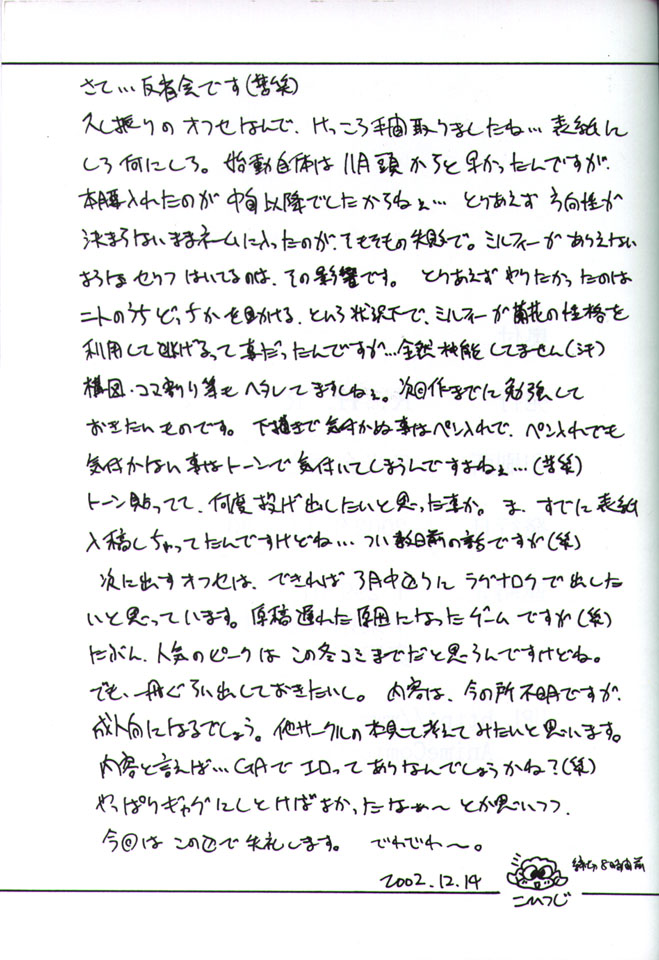 さて…反省会です(苦笑)
久し振りのオフセなんで、けっこう手間取りましたね… 表紙に
しろ何にしろ。 始動自体は11月頭からと早かったんですが、
本腰入れたのが中旬以降でしたからねぇ… とりあえず方向性が
決まらないままネームに入ったのが、そもそもの失敗で。ミルフィーがありえない
ようなセリフはいてるのは、その影響です。 とりあえずやりたかったのは
ニトのうちどっちかを助ける、という状況下で、ミルフィーが蘭花の性格を
利用して逃げるって事だったんですが…全然機能してません(汗)
構図・コマ割り等もヘタレてますしねぇ。次回作までに勉強して
おきたいものです。 下描きで気付かぬ事はペン入れで、ペン入れでも
気付かない事はトーンで気付いてしまうんですよねぇ…(苦笑)
トーン貼ってて、何度投げ出したいと思った事か。 ま、すでに表紙
入稿しちゃってたんですけどね… つい数日前の話ですが(笑)
次に出すオフセは、できれば3月中辺りにラグナロクで出した
いと思っています。原稿遅れた原因になったゲームですが(笑)
たぶん、人気のピークはこの冬コミまでだと思うんですけどね。
でも、一冊ぐらい出しておきたいし。 内容は、今の所不明ですが、
成人向になるでしょう。他サークルの本見て考えてみたいと思います。
内容と言えば… GAでエロってありなんでしょうかね?(笑)
やっぱりギャグにしとけばよかったなぁ〜とか思いつつ、
今回はこの辺で失礼します。 でわでわ〜。
2002.12.14
締切8時間前
こひつじ